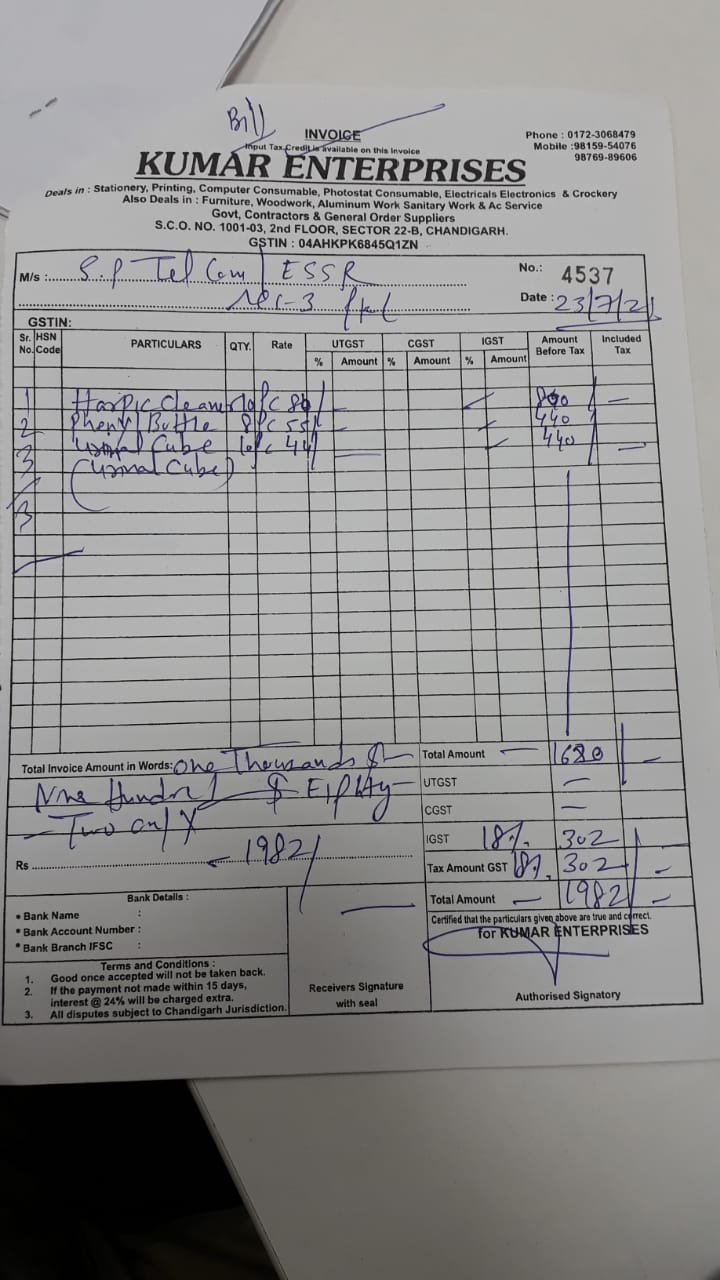 Bill
INVOICE
Input Tax Credit is available on this Invoice
Phone : 0172-3068479
Mobile :98159-54076
98769-89606
KUMAR ENTERPRISES
Deals in : Stationery, Printing, Computer Consumable, Photostat Consumable, Electricals Electronics & Crockery
Also Deals in : Furniture, Woodwork, Aluminum Work Sanitary Work & Ac Service
Govt, Contractors & General Order Suppliers
S.C.O. NO. 1001-03, 2nd FLOOR, SECTOR 22-B, CHANDIGARH.
GSTIN : 04AHKPK6845Q1ZN
M/s : S.P Tel Com / ESSR
No.: 4537
Date : 23/7/2
GSTIN:
Sr. No. HSN Code PARTICULARS QTY. Rate UTGST CGST IGST Amount Before Tax Included Tax
% Amount % Amount % Amount
1 Harpic Cleaner 10pc 80/ 800
2 Phenyl Buttle 8pc 55/ 440
3 Cube 10pc 44/ 440
(Urinal Cube)
3
Total Invoice Amount in Words: One Thousands &
Nine Hundred & Eighty
Two only
Rs 1982/
Total Amount 1680
UTGST
CGST
IGST 18% 302
Tax Amount GST 18% 302
Total Amount 1982/
Bank Details :
• Bank Name :
• Bank Account Number :
• Bank Branch IFSC :
Certified that the particulars given above are true and correct.
for KUMAR ENTERPRISES
Terms and Conditions :
1. Good once accepted will not be taken back.
2. If the payment not made within 15 days,
interest @ 24% will be charged extra.
3. All disputes subject to Chandigarh Jurisdiction.
Receivers Signature
with seal
Authorised Signatory